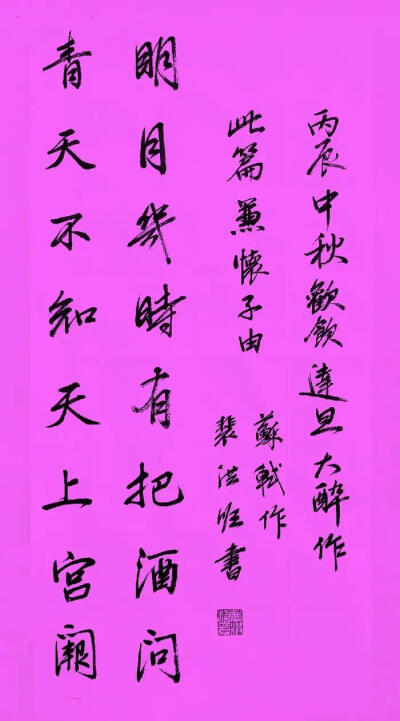 丙辰中秋歡飲達旦大醉作
此篇兼懷子由
蘇軾作
裴洪旺書
明月幾時有把酒問
青天不知天上宮闕